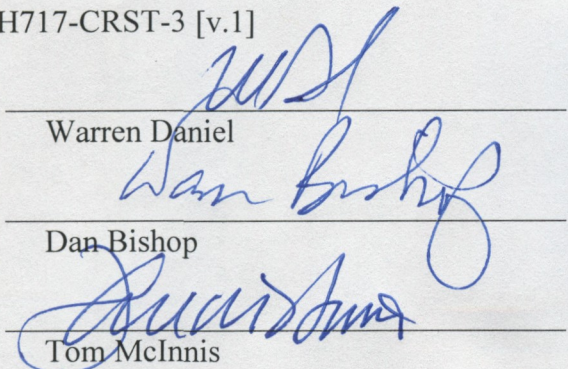 H717-CRST-3 [v.1]
Warren Daniel
Dan Bishop
Dan Bishop
Tom McInnis